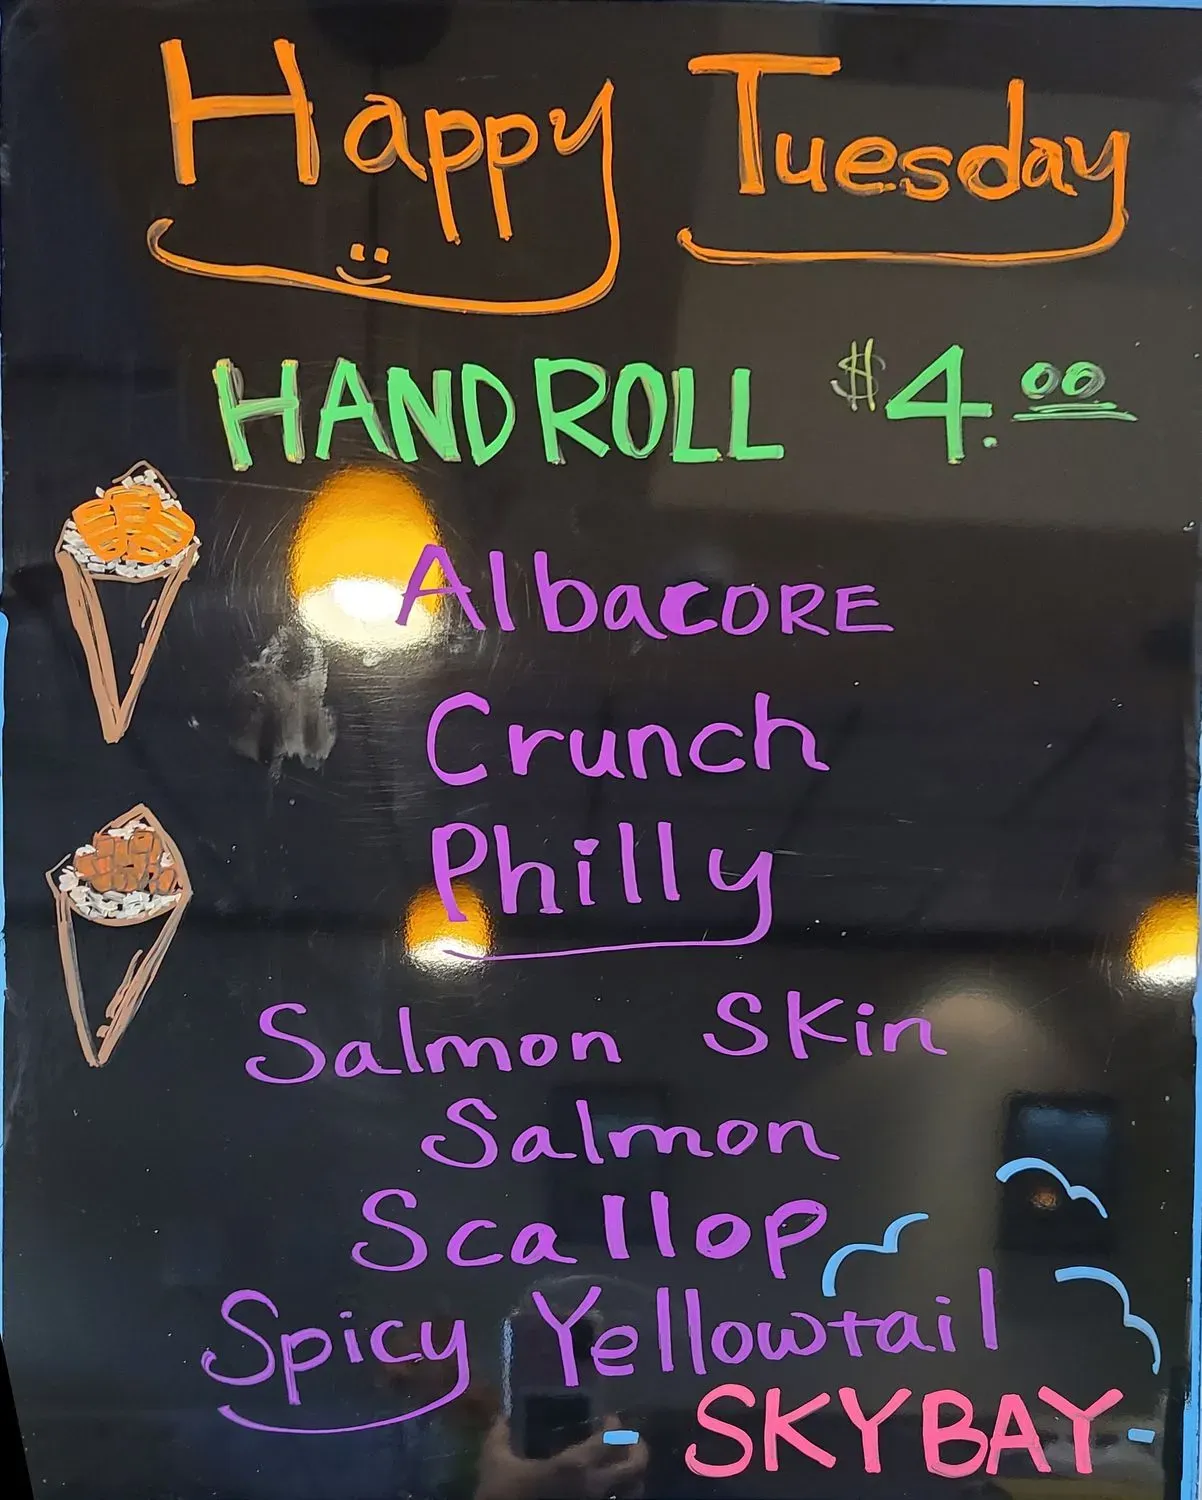 Happy Tuesday
HAND ROLL $4.00
AlbacORE
Crunch
Philly
Salmon Skin
Salmon
Scallop
Spicy Yellowtail
- SKYBAY -